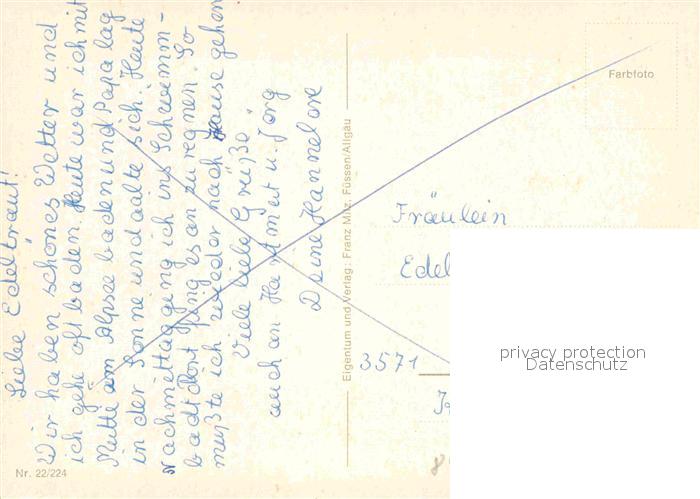 Liebe Edeltraut!
Wir haben schönes Wetter und
ich gehe oft baden. Heute war ich mit
Mutti am Alpsee baden und Papa lag
in der Sonne und aalte sich. Heute
Nachmittag ging ich ins Schwimm-
bad dort fing es an zu regnen. So
mußte ich wieder nach Hause gehen
Viele liebe Grüße
auch an Ha u. Jörg
Deine Hannelore
Eigentum und Verlag: Franz Milz, Füssen/Allgäu
Nr. 22/224
Farbfoto
Fräulein
Edel
3571
privacy protection
Datenschutz